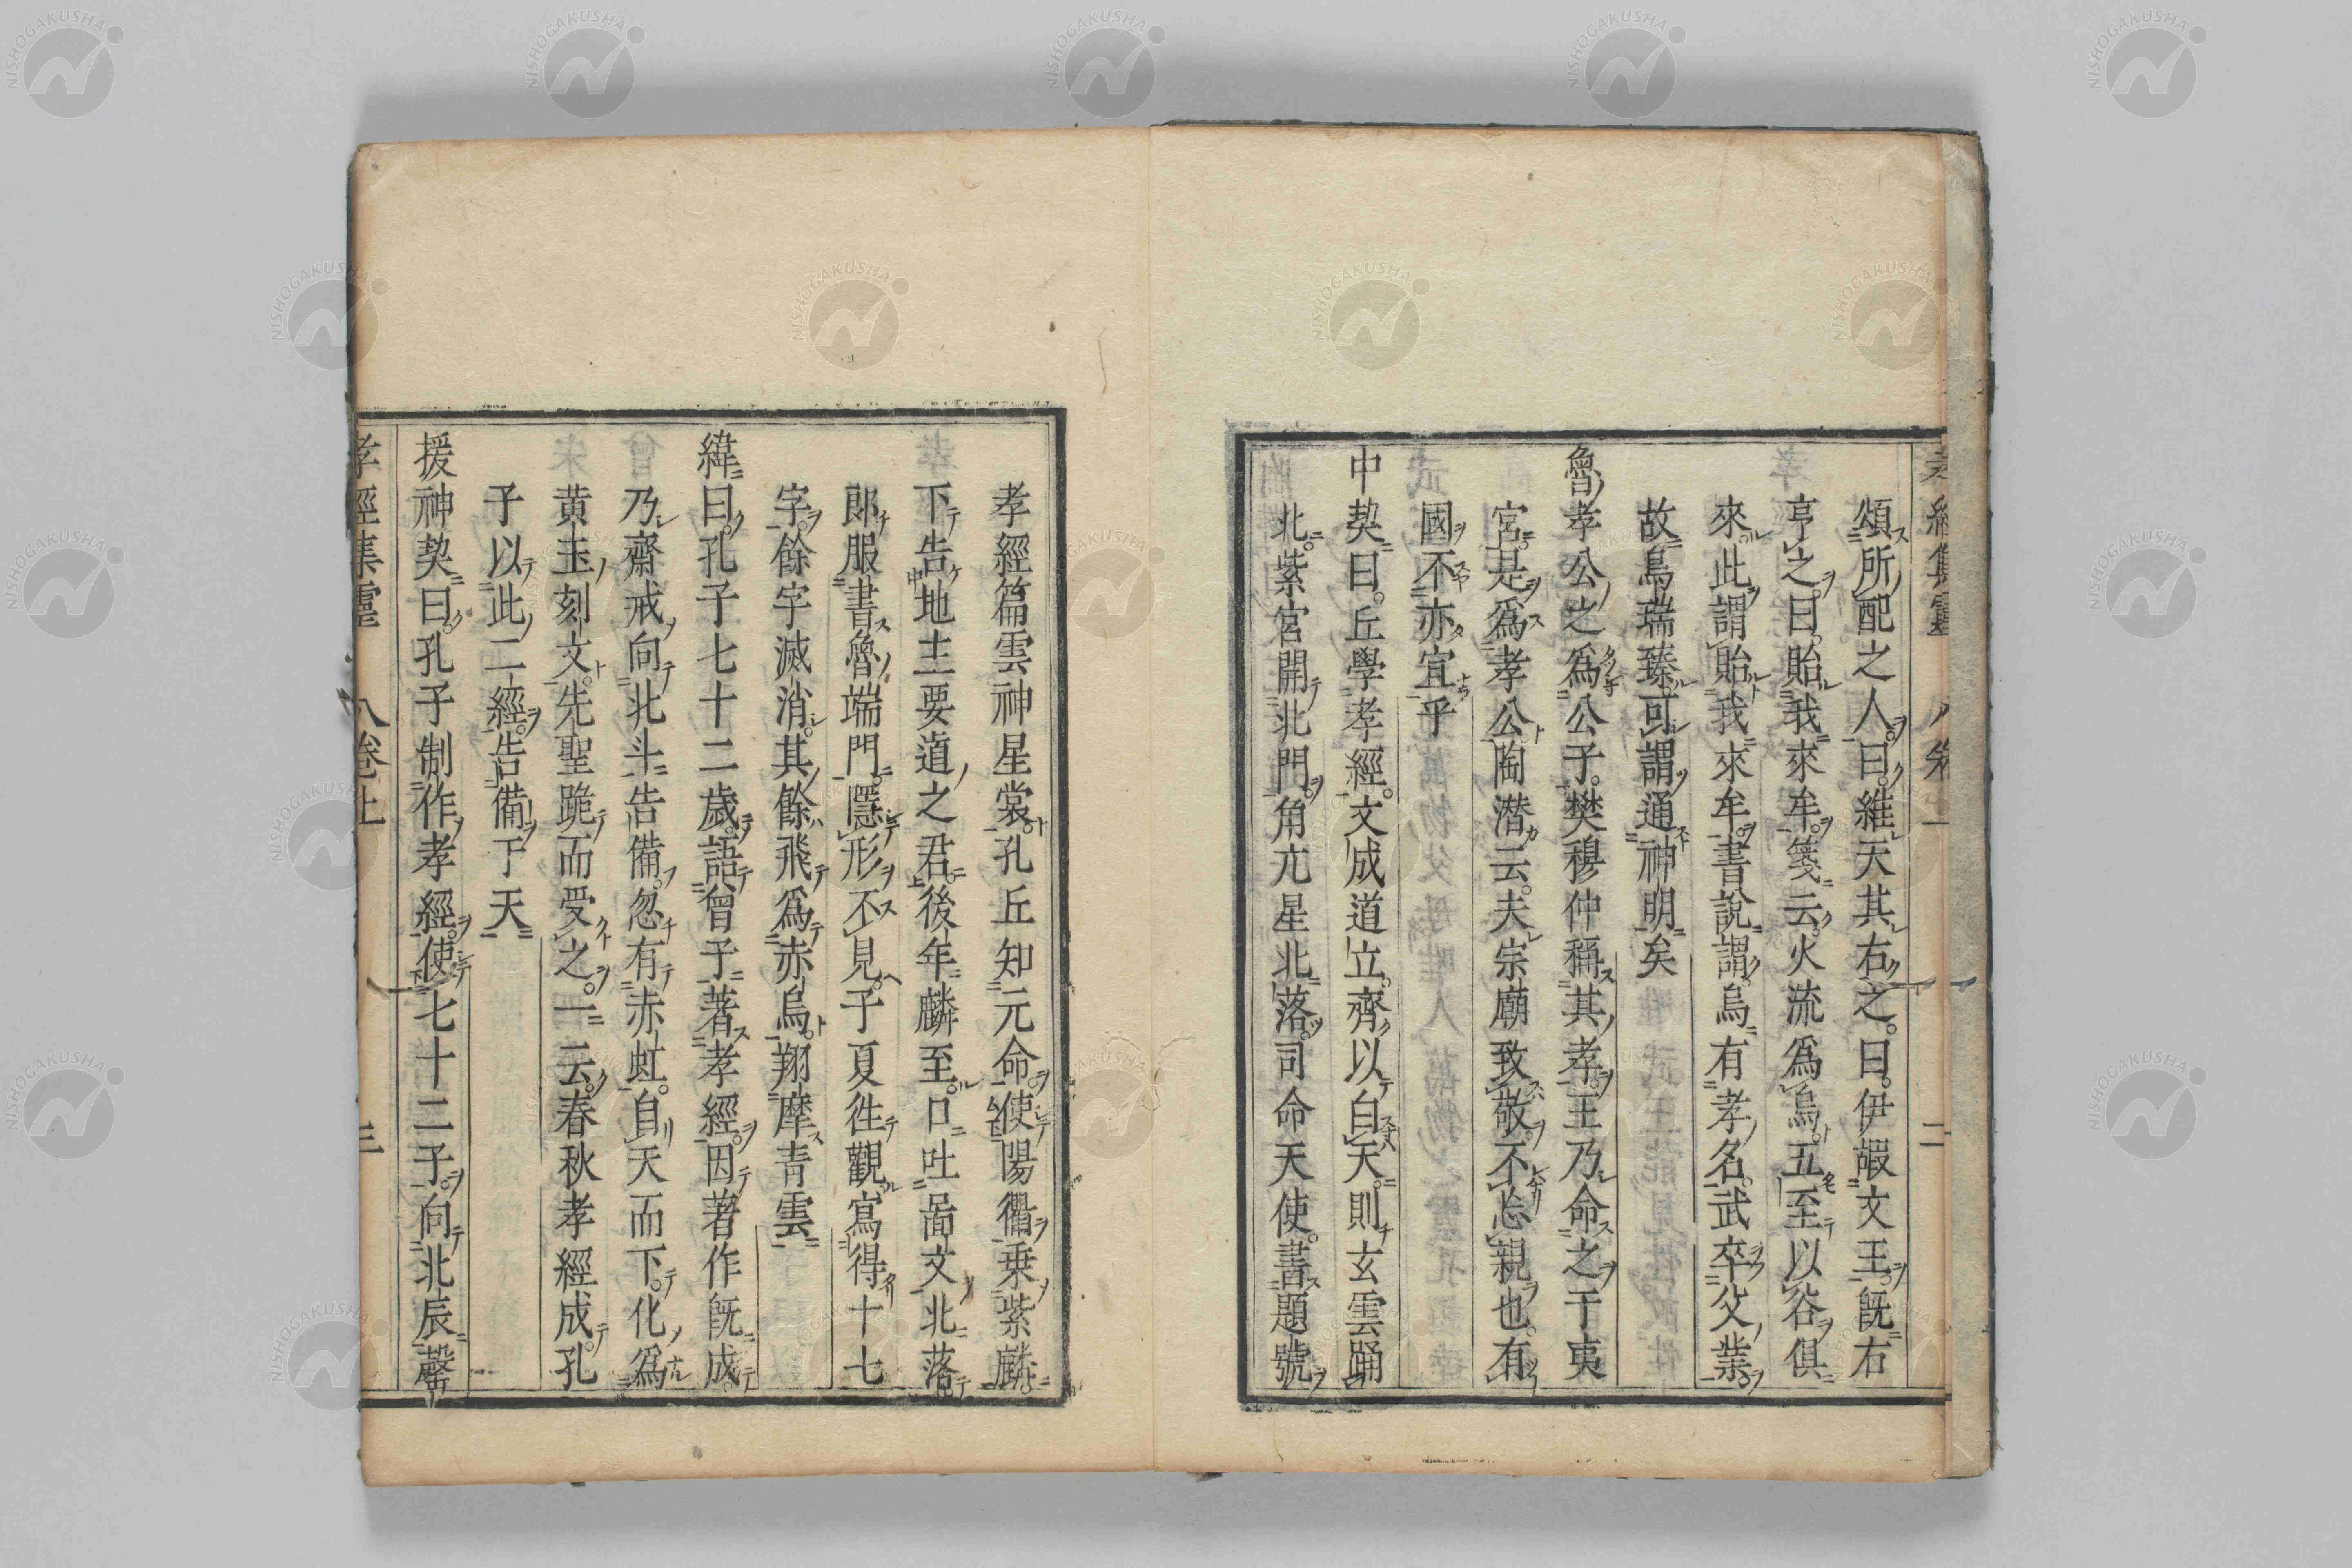 孝經集靈 八卷上 二
頌所配之人曰維天其右之曰伊嘏文王旣右
亨之曰貽我來牟箋云火流爲烏五至以谷俱
來此謂貽我來牟書說謂烏有孝名武卒父業
故烏瑞臻可謂通神明矣
魯孝公之爲公子樊穆仲稱其孝王乃命之于夷
宮是爲孝公陶潜云夫宗廟致敬不忘親也有
國不亦宜乎
中契曰丘學孝經文成道立齊以白天則玄雲踊
北紫宮開北門角亢星北落司命天使書題號
孝經篇雲神星裳孔丘知元命使陽衢乗紫麟
下告地主要道之君後年麟至口吐啚文北落
郎服書魯端門隱形不見子夏徃觀寫得十七
字餘字滅消其餘飛爲赤烏翔摩青雲
緯曰孔子七十二歲語曾子著孝經因著作旣成
乃齋戒向北斗告備忽有赤虹自天而下化爲
黄玉刻文先聖跪而受之一云春秋孝經成孔
子以此二經告備于天
援神契曰孔子制作孝經使七十二子向北辰罄
孝經集靈 八卷上 三
NISHOGAKUSHA